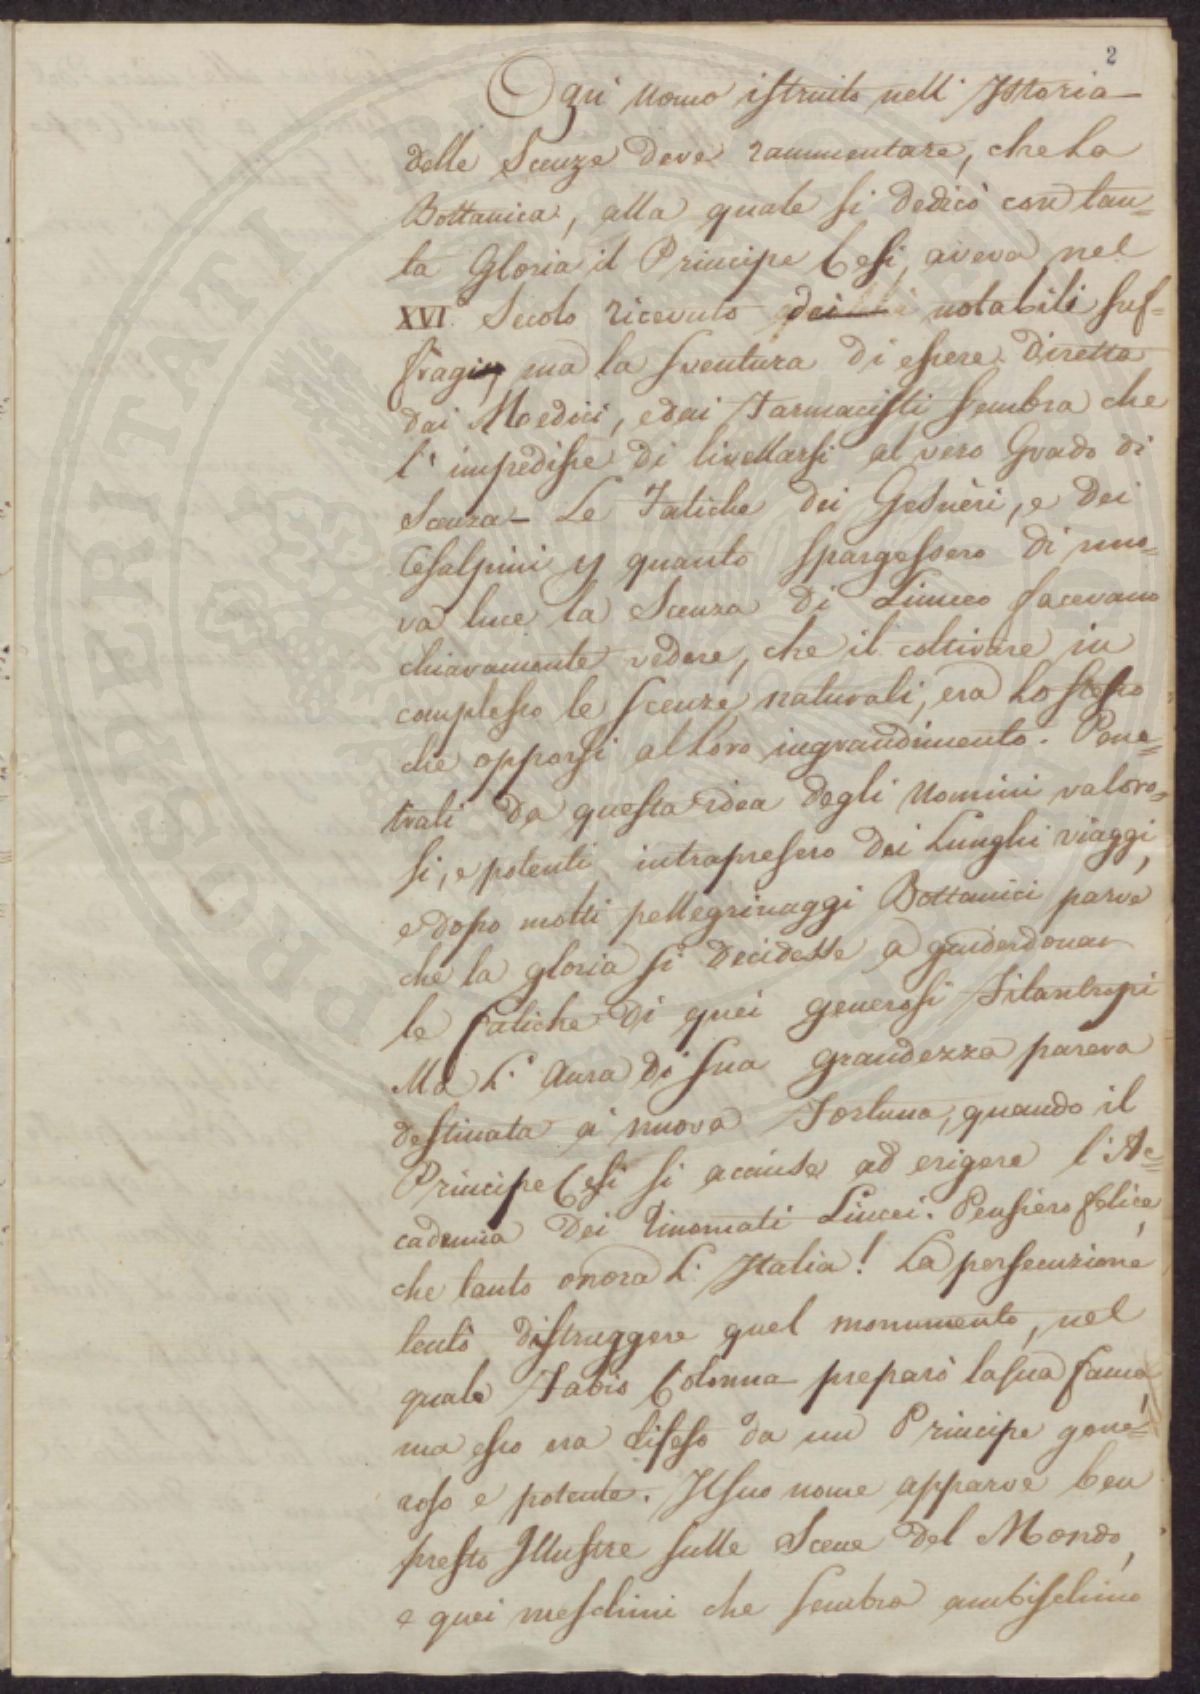 2
Ogni Uomo istruito nell' Istoria
delle Scenze deve rammentare, che la
Bottanica, alla quale si dedicò con tan=
ta Gloria il Principe Cesi, aveva nel
XVI. Secolo ricevuto dei notabili suf=
fragi, ma la sventura di essere diretta
dai Medici, e dai Farmacisti sembra che
l' impedisse di livellarsi al vero Grado di
Scenza - Le Fatiche dei Gesnèri, e dei
Cesalpini quanto spargessero di nuo=
va luce la Scenza di Linneo facevano
chiaramente vedere, che il coltivare in
complesso le scenze naturali, era lo stesso
che opporsi al loro ingrandimento. Pene=
trati da questa idea degli Uomini valoro=
si, e potenti intrapresero dei Lunghi viaggi,
e dopo molti pellegrinaggi Bottanici parve
che la gloria si decidesse a guiderdonar
le fatiche di quei generosi Filantropi
Ma L' Aura di sua grandezza pareva
destinata a nuova Fortuna, quando il
Principe Cesi si accinse ad erigere l' Ac=
cademia dei rinomati Lincei. Pensiero felice,
che tanto onora L' Italia! La persecuzione
tentò distruggere quel monumento, nel
quale Fabio Colonna preparò la sua fama,
ma esso era difeso da un Principe gene=
roso e potente. Il suo nome apparve ben
presto Illustre sulle Scene del Mondo,
e quei meschini che sembra ambischino
PROSPERITATI PUBLICAE